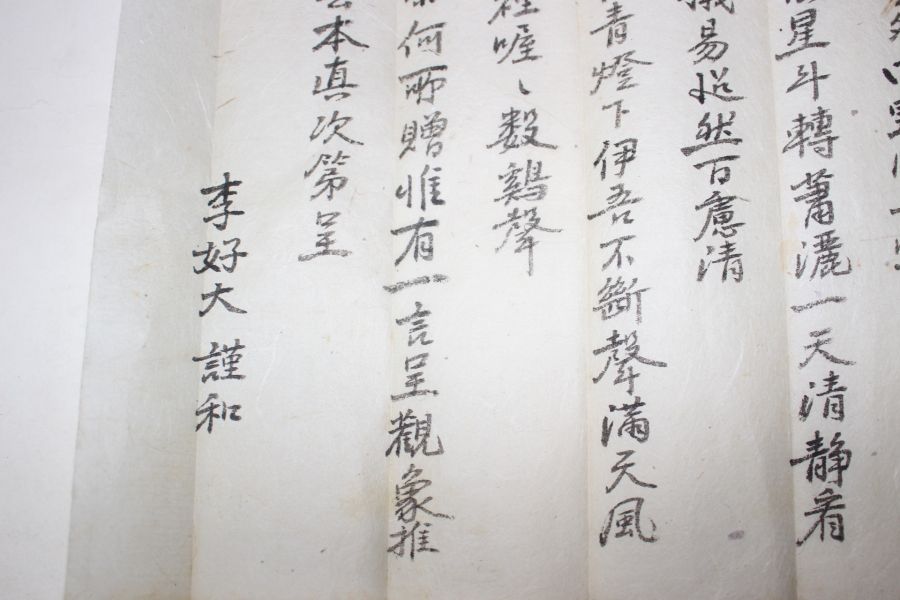 星斗轉蕭灑一天清靜看
易悠然百慮清
青燈下伊吾不斷聲滿天風
喔〻數鷄聲
何所贈惟有一言呈觀象推
本真次第呈
李好大 謹和